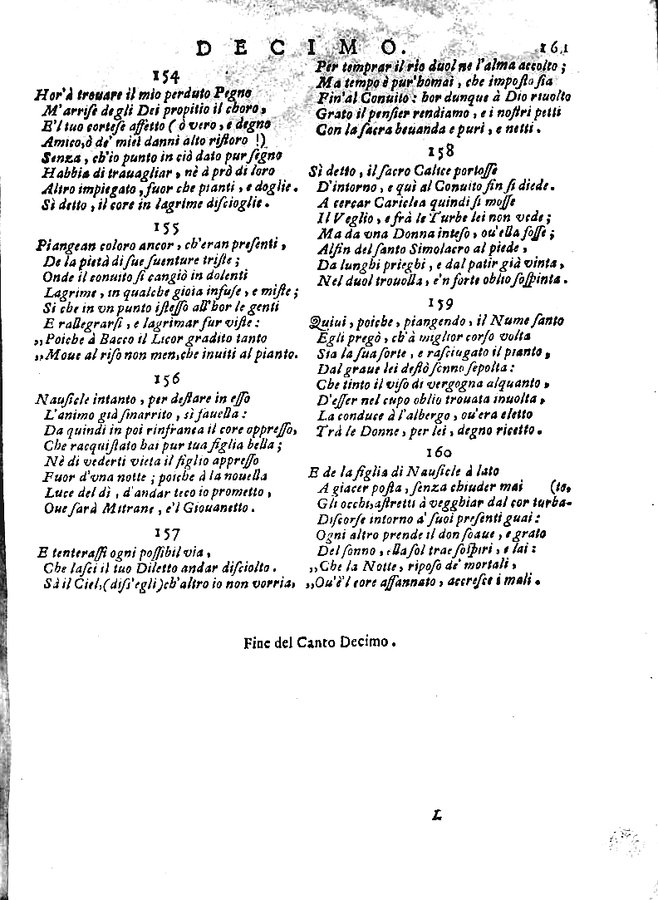 DECIMO. 161
154
Hor'à trouare il mio perduto Pegno
M'arrise degli Dei propitio il choro,
E'l tuo cortese affetto (ò vero, e degno
Amico, ò de' miei danni alto ristoro!)
Senza, ch'io punto in ciò dato pur segno
Habbia di trauagliar, nè à prò di loro
Altro impiegato, fuor che pianti, e doglie.
Sì detto, il core in lagrime discioglie.
155
Piangean coloro ancor, ch'eran presenti,
De la pietà di sue suenture triste;
Onde il conuito si cangiò in dolenti
Lagrime, in qualche gioia infuse, e miste;
Sì che in vn punto istesso all'hor le genti
E rallegrarsi, e lagrimar fur viste:
„Poiche à Bacco il Licor gradito tanto
„Moue al riso non men, che inuiti al pianto.
156
Nausicle intanto, per destare in esso
L'animo già smarrito, sì fauella:
Da quindi in poi rinfranca il core oppresso,
Che racquistato hai pur tua figlia bella;
Nè di vederti vieta il figlio appresso
Fuor d'vna notte; poiche à la nouella
Luce del dì, d'andar teco io prometto,
Oue sarà Mitrane, e'l Giouanetto.
157
E tenterassi ogni possibil via,
Che lasci il tuo Diletto andar disciolto.
Sà il Ciel, (diss'egli) ch'altro io non vorria,
Per temprar il rio duol ne l'alma accolto;
Ma tempo è pur'homai, che imposto sia
Fin'al Conuito: hor dunque à Dio riuolto
Grato il pensier rendiamo, e i nostri petti
Con la sacra beuanda e puri, e netti.
158
Sì detto, il sacro Calice portosse
D'intorno, e quì al Conuito fin si diede.
A cercar Cariclea quindi si mosse
Il Veglio, e frà le Turbe lei non vede;
Ma da vna Donna inteso, ou'ella fosse;
Alfin del santo Simolacro al piede,
Da lunghi prieghi, e dal patir già vinta,
Nel duol trouolla, e'n forte oblio sospinta.
159
Quiui, poiche, piangendo, il Nume santo
Egli pregò, ch'à miglior corso volta
Sia la sua sorte, e rasciugato il pianto,
Dal graue lei destò sonno sepolta:
Che tinto il viso di vergogna alquanto,
D'esser nel cupo oblio trouata inuolta,
La conduce à l'albergo, ou'era eletto
Trà le Donne, per lei, degno ricetto.
160
E de la figlia di Nausicle à lato
A giacer posta, senza chiuder mai (to,
Gli occhi, astretti à vegghiar dal cor turba-
Discorse intorno a' suoi presenti guai:
Ogni altro prende il don soaue, e grato
Del sonno, ella sol trae sospiri, e lai:
„Che la Notte, riposo de' mortali,
„Ou'è'l core affannato, accresce i mali.
Fine del Canto Decimo.
L